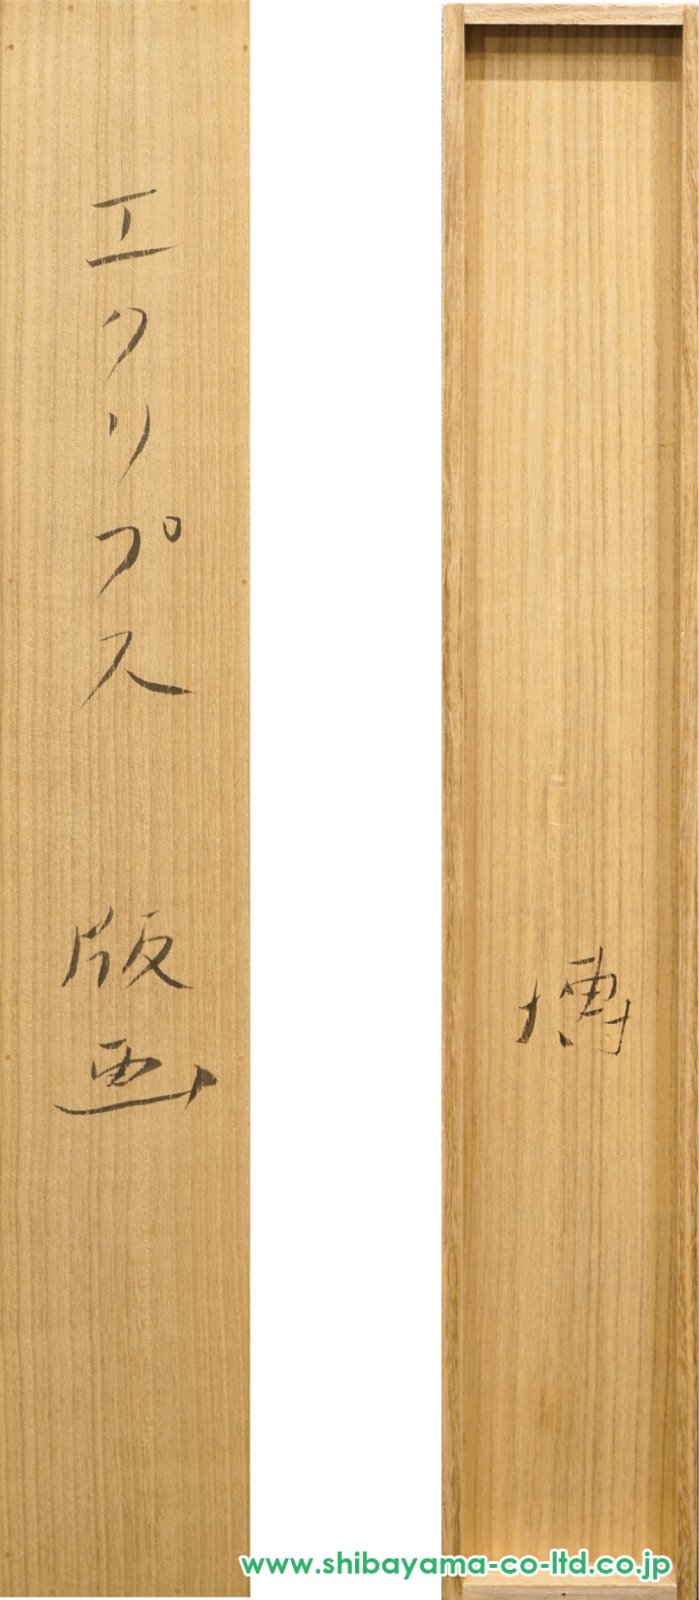 エクリプス
版画
博
www.shibayama-co-ltd.co.jp